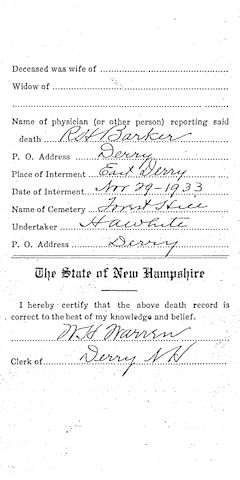 Deceased was wife of
Widow of
Name of physician (or other person) reporting said
death R H Barker
P. O. Address Derry
Place of Interment East Derry
Date of Interment Nov 29-1933
Name of Cemetery Forest Hill
Undertaker H A White
P. O. Address Derry
The State of New Hampshire
I hereby certify that the above death record is
correct to the best of my knowledge and belief.
W H Warren
Clerk of Derry N H